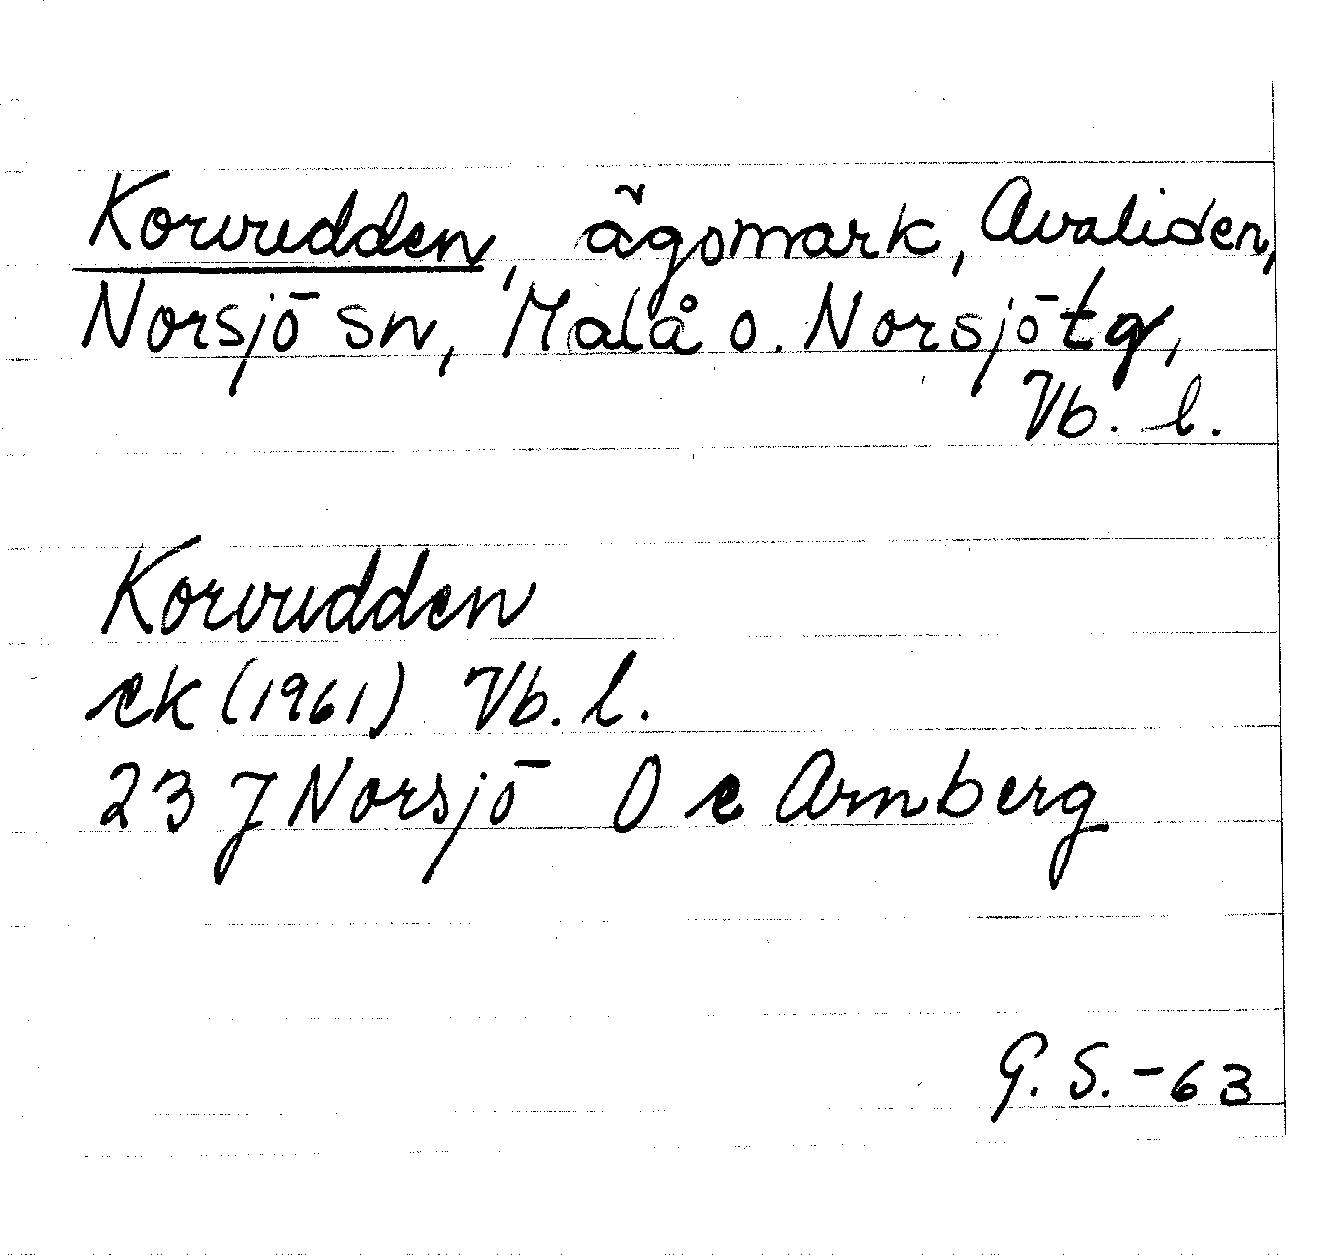 Korvudden, ägomark, Avaliden,
Norsjö sn, Malå o. Norsjö tg,
Vb. l.
Korvudden
ek (1961) Vb. l.
23 J Norsjö O e Arnberg
G. S. -63